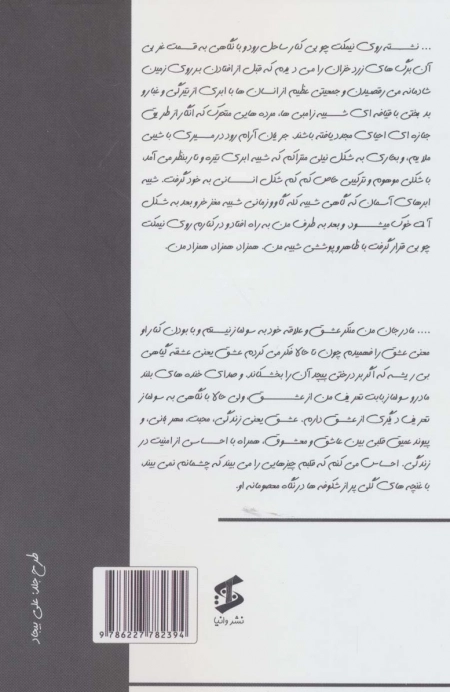 ... نشسته روی نیمکت چوبی کنار ساحل رود و با نگاهی به قسمت غربی
آن برگ های زرد خزان را می دیدم که قبل از افتادن بر روی زمین
شادمانه می رقصیدن و جمعیتی عظیم از انسان ها با ابری از تیرگی و غبار و
بدبختی با قیافه ای شبیه زامبی ها، مرده هایی متحرک که انگار از طریق
جنازه ای احیای مجدد یافته باشند. جریان آرام رود در مسیری با شیبی
ملایم، و بخاری به شکل نیلی متراکم که شبیه ابری تیره و تار بنظر می آمد
با شکلی موهوم و ترکیبی خاص کم کم شکل انسانی به خود گرفت. شبیه
ابرهای آسمان که گاهی شبیه کله گاو و زمانی شبیه مغز خر و بعد به شکل
آن خوک میشود و بعد به طرف من به راه افتاد و در کنارم روی نیمکت
چوبی قرار گرفت با ظاهر و پوششی شبیه من. همزاد، همزاد، همزاد من.
.... مادر جان من منکر عشق و علاقه خود به سولماز نیستم و با بودن کنار او
معنی عشق را فهمیدم چون تا حالا فکر می کردم عشق یعنی عشقه گیاهی
بی ریشه که اگر بر درختی پیچد آن را بخشکاند و صدای خنده های بلند
مادر و سولماز بابت تعریف من از عشق ولی حالا با نگاهی به سولماز
تعریف دیگری از عشق دارم. عشق یعنی زندگی، محبت، مهربانی، و
پیوند عمیق قلبی بین عاشق و معشوق، همراه با احساس از امنیت در
زندگی. احساس می کنم که قلبم چیزهایی را می بیند که چشمانم نمی بیند
با غنچه های گلی پر از شکوفه ها در نگاه معصومانه او.
طرح جلد: علی بیجاد
نشر وانیا
9 786227 782394